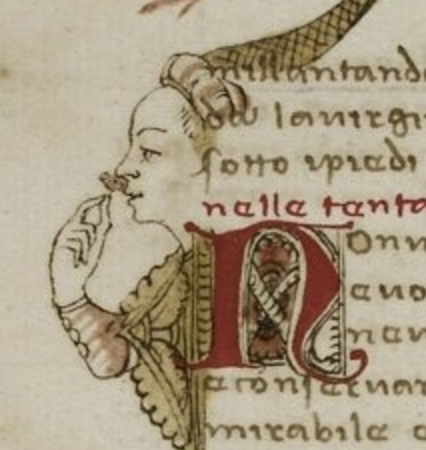 millantand
lavirgi
sotto ipiedi
nelle tenta
Non
evo
nev
econservar
mirabile